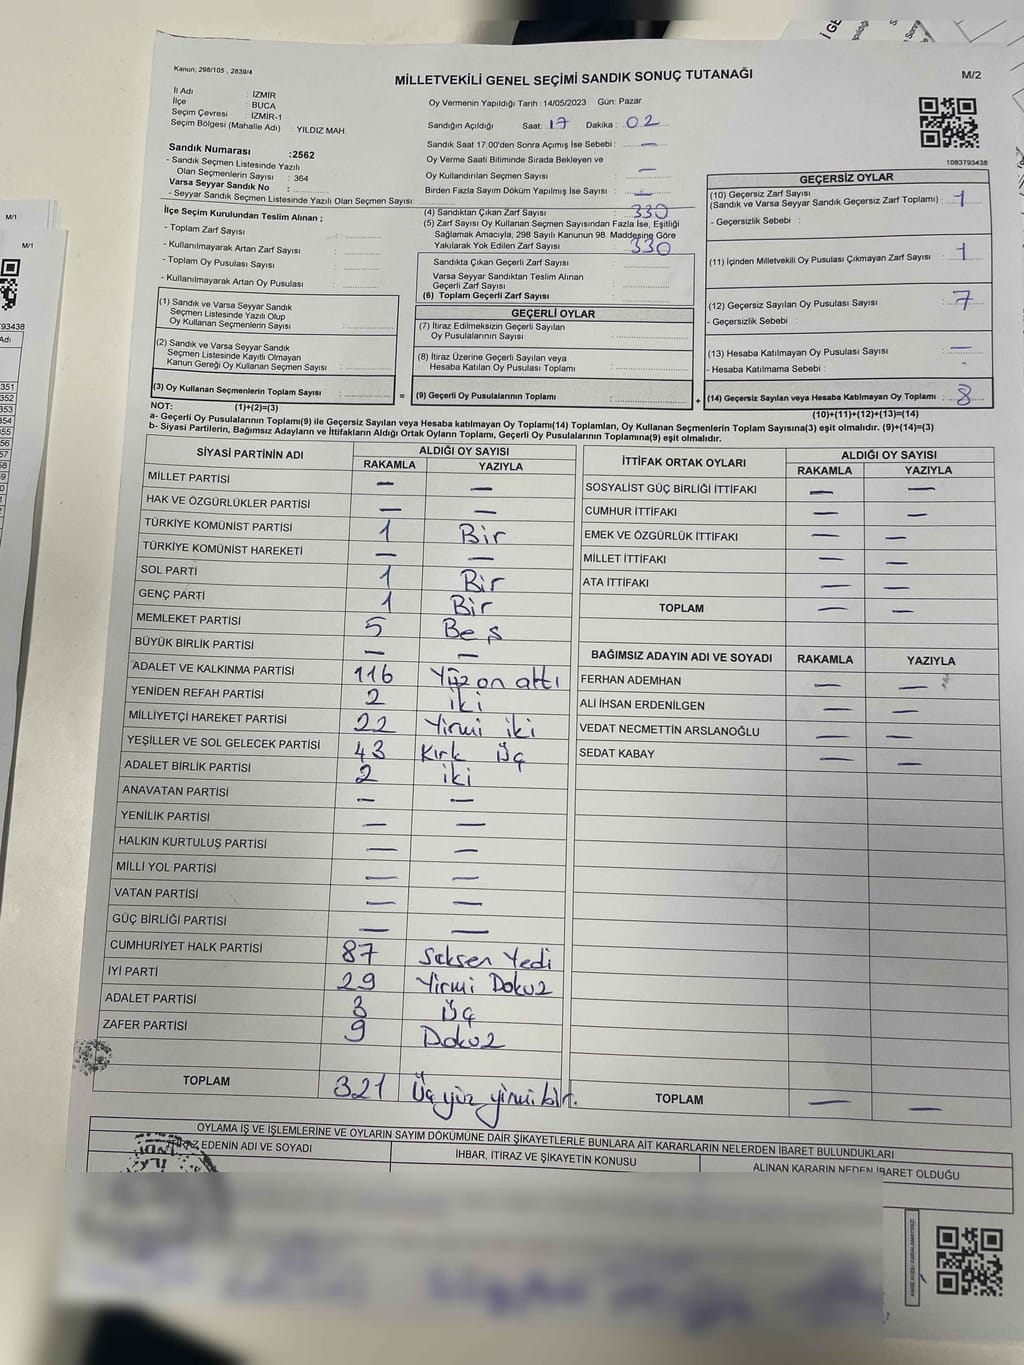 Kanun; 298/105 , 2839/4
MİLLETVEKİLİ GENEL SEÇİMİ SANDIK SONUÇ TUTANAĞI
M/2
İl Adı : İZMİR
İlçe : BUCA
Seçim Çevresi : İZMİR-1
Seçim Bölgesi (Mahalle Adı) : YILDIZ MAH.
Oy Vermenin Yapıldığı Tarih :14/05/2023 Gün: Pazar
Sandığın Açıldığı Saat: 17 Dakika: 02
Sandık Saat 17.00'den Sonra Açımış İse Sebebi : —
Oy Verme Saati Bitiminde Sırada Bekleyen ve
Oy Kullandırılan Seçmen Sayısı : —
Birden Fazla Sayım Döküm Yapılmış İse Sayısı : —
1083793438
Sandık Numarası :2562
- Sandık Seçmen Listesinde Yazılı
Olan Seçmenlerin Sayısı : 364
Varsa Seyyar Sandık No :
- Seyyar Sandık Seçmen Listesinde Yazılı Olan Seçmen Sayısı:
İlçe Seçim Kurulundan Teslim Alınan ;
- Toplam Zarf Sayısı :
- Kullanılmayarak Artan Zarf Sayısı :
- Toplam Oy Pusulası Sayısı :
- Kullanılmayarak Artan Oy Pusulası :
(1) Sandık ve Varsa Seyyar Sandık
Seçmen Listesinde Yazılı Olup
Oy Kullanan Seçmenlerin Sayısı :
(2) Sandık ve Varsa Seyyar Sandık
Seçmen Listesinde Kayıtlı Olmayan
Kanun Gereği Oy Kullanan Seçmen Sayısı :
(3) Oy Kullanan Seçmenlerin Toplam Sayısı : =
(4) Sandıktan Çıkan Zarf Sayısı : 330
(5) Zarf Sayısı Oy Kullanan Seçmen Sayısından Fazla İse, Eşitliği
Sağlamak Amacıyla; 298 Sayılı Kanunun 98. Maddesine Göre
Yakılarak Yok Edilen Zarf Sayısı : 330
Sandıkta Çıkan Geçerli Zarf Sayısı :
Varsa Seyyar Sandıktan Teslim Alınan
Geçerli Zarf Sayısı :
(6) Toplam Geçerli Zarf Sayısı :
GEÇERLİ OYLAR
(7) İtiraz Edilmeksizin Geçerli Sayılan
Oy Pusulalarının Sayısı :
(8) İtiraz Üzerine Geçerli Sayılan veya
Hesaba Katılan Oy Pusulası Toplamı :
(9) Geçerli Oy Pusulalarının Toplamı : +
GEÇERSİZ OYLAR
(10) Geçersiz Zarf Sayısı
(Sandık ve Varsa Seyyar Sandık Geçersiz Zarf Toplamı) : 1
- Geçersizlik Sebebi :
(11) İçinden Milletvekili Oy Pusulası Çıkmayan Zarf Sayısı : 1
(12) Geçersiz Sayılan Oy Pusulası Sayısı : 7
- Geçersizlik Sebebi :
(13) Hesaba Katılmayan Oy Pusulası Sayısı : —
- Hesaba Katılmama Sebebi :
(14) Geçersiz Sayılan veya Hesaba Katılmayan Oy Toplamı : 8
NOT: (1)+(2)=(3)
(10)+(11)+(12)+(13)=(14)
a- Geçerli Oy Pusulalarının Toplamı(9) ile Geçersiz Sayılan veya Hesaba katılmayan Oy Toplamı(14) Toplamları, Oy Kullanan Seçmenlerin Toplam Sayısına(3) eşit olmalıdır. (9)+(14)=(3)
b- Siyasi Partilerin, Bağımsız Adayların ve İttifakların Aldığı Ortak Oyların Toplamı, Geçerli Oy Pusulalarının Toplamına(9) eşit olmalıdır.
SİYASİ PARTİNİN ADI ALDIĞI OY SAYISI
RAKAMLA YAZIYLA
MİLLET PARTİSİ — —
HAK VE ÖZGÜRLÜKLER PARTİSİ — —
TÜRKİYE KOMÜNİST PARTİSİ 1 Bir
TÜRKİYE KOMÜNİST HAREKETİ — —
SOL PARTİ 1 Bir
GENÇ PARTİ 1 Bir
MEMLEKET PARTİSİ 5 Beş
BÜYÜK BİRLİK PARTİSİ — —
ADALET VE KALKINMA PARTİSİ 116 Yüz on altı
YENİDEN REFAH PARTİSİ 2 iki
MİLLİYETÇİ HAREKET PARTİSİ 22 Yirmi iki
YEŞİLLER VE SOL GELECEK PARTİSİ 43 Kırk Üç
ADALET BİRLİK PARTİSİ 2 iki
ANAVATAN PARTİSİ — —
YENİLİK PARTİSİ — —
HALKIN KURTULUŞ PARTİSİ — —
MİLLİ YOL PARTİSİ — —
VATAN PARTİSİ — —
GÜÇ BİRLİĞİ PARTİSİ — —
CUMHURİYET HALK PARTİSİ 87 Seksen Yedi
İYİ PARTİ 29 Yirmi Dokuz
ADALET PARTİSİ 3 Üç
ZAFER PARTİSİ 9 Dokuz
TOPLAM 321 Üç yüz yirmi bir.
İTTİFAK ORTAK OYLARI ALDIĞI OY SAYISI
RAKAMLA YAZIYLA
SOSYALİST GÜÇ BİRLİĞİ İTTİFAKI — —
CUMHUR İTTİFAKI — —
EMEK VE ÖZGÜRLÜK İTTİFAKI — —
MİLLET İTTİFAKI — —
ATA İTTİFAKI — —
TOPLAM — —
BAĞIMSIZ ADAYIN ADI VE SOYADI RAKAMLA YAZIYLA
FERHAN ADEMHAN — —
ALİ İHSAN ERDENİLGEN — —
VEDAT NECMETTİN ARSLANOĞLU — —
SEDAT KABAY — —
TOPLAM — —
OYLAMA İŞ VE İŞLEMLERİNE VE OYLARIN SAYIM DÖKÜMÜNE DAİR ŞİKAYETLERLE BUNLARA AİT KARARLARIN NELERDEN İBARET BULUNDUKLARI
İTİRAZ EDENİN ADI VE SOYADI İHBAR, İTİRAZ VE ŞİKAYETİN KONUSU ALINAN KARARIN NEDEN İBARET OLDUĞU
M/1
M/1
93438
Adı
351
352
353
354
355